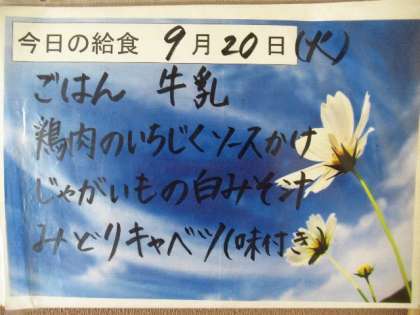 今日の給食 9月20日(火)
ごはん 牛乳
鶏肉のいちじくソースかけ
じゃがいもの白みそ汁
みどりキャベツ(味付き)